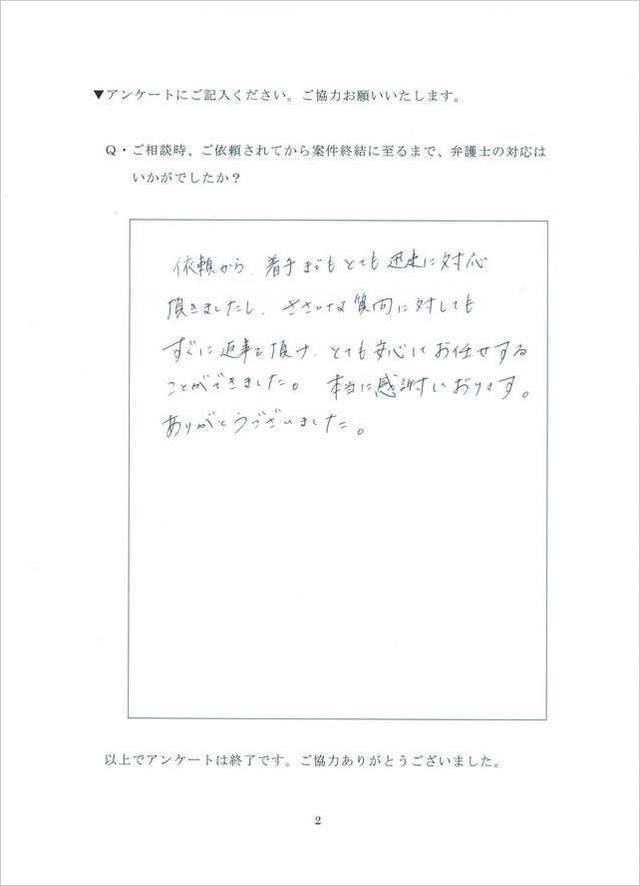 ▼アンケートにご記入ください。ご協力お願いいたします。
Q・ご相談時、ご依頼されてから案件終結に至るまで、弁護士の対応は
いかがでしたか？
依頼から、着手までもとても迅速に対応
頂きましたし、ささいな質問に対しても
すぐに返事を頂け、とても安心してお任せする
ことができました。本当に感謝しております。
ありがとうございました。
以上でアンケートは終了です。ご協力ありがとうございました。
2